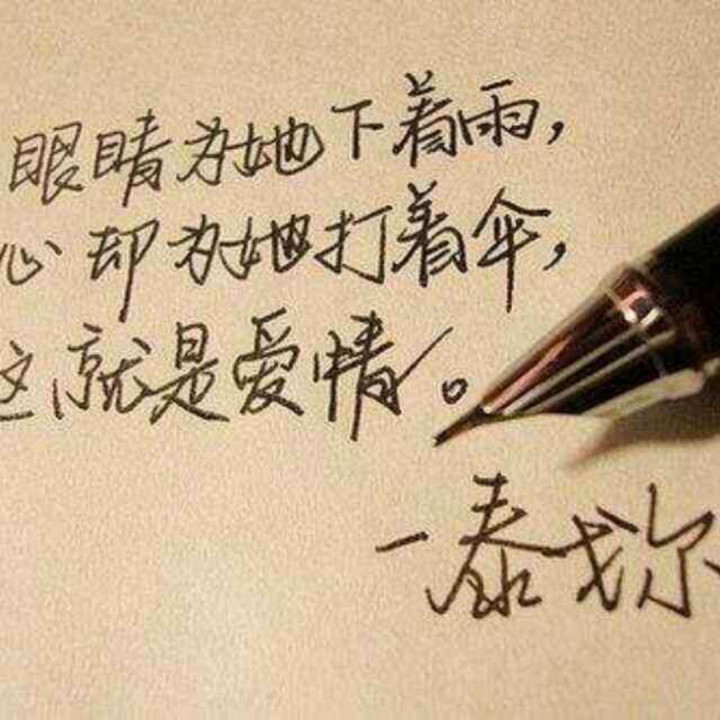 眼睛为她下着雨，
心却为她打着伞，
这就是爱情。
-泰戈尔